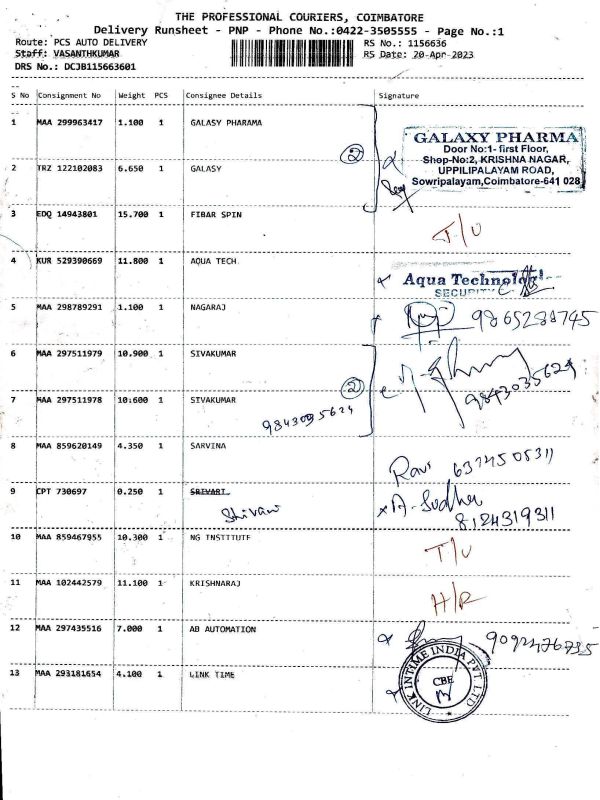 THE PROFESSIONAL COURIERS, COIMBATORE
Delivery Runsheet - PNP - Phone No.:0422-3505555 - Page No.:1
Route: PCS AUTO DELIVERY RS No.: 1156636
Staff: VASANTHKUMAR RS Date: 20-Apr-2023
DRS No.: DCJB115663601
S No Consignment No Weight PCS Consignee Details Signature
1 MAA 299963417 1.100 1 GALASY PHARAMA
2
GALAXY PHARMA
Door No:1- first Floor,
Shop-No:2, KRISHNA NAGAR,
UPPILIPALAYAM ROAD,
Sowripalayam,Coimbatore-641 028
2 TRZ 122102083 6.650 1 GALASY
3 EDQ 14943801 15.700 1 FIBAR SPIN T/U
4 KUR 529390669 11.800 1 AQUA TECH
Aqua Technolog
SECURITY
5 MAA 298789291 1.100 1 NAGARAJ 9865288745
6 MAA 297511979 10.900 1 SIVAKUMAR
2
9843035624
7 MAA 297511978 10.600 1 SIVAKUMAR
9843035624
8 MAA 859620149 4.350 1 SARVINA Ravi 6374505311
9 CPT 730697 0.250 1 SRIVARI A. Sudha
Shivani 8124319311
10 MAA 859467955 10.300 1 NG INSTITUTE T/U
11 MAA 102442579 11.100 1 KRISHNARAJ H/R
12 MAA 297435516 7.000 1 AB AUTOMATION 9092476735
13 MAA 293181654 4.100 1 LINK TIME
LINK INTIME INDIA PVT. LTD
CBE